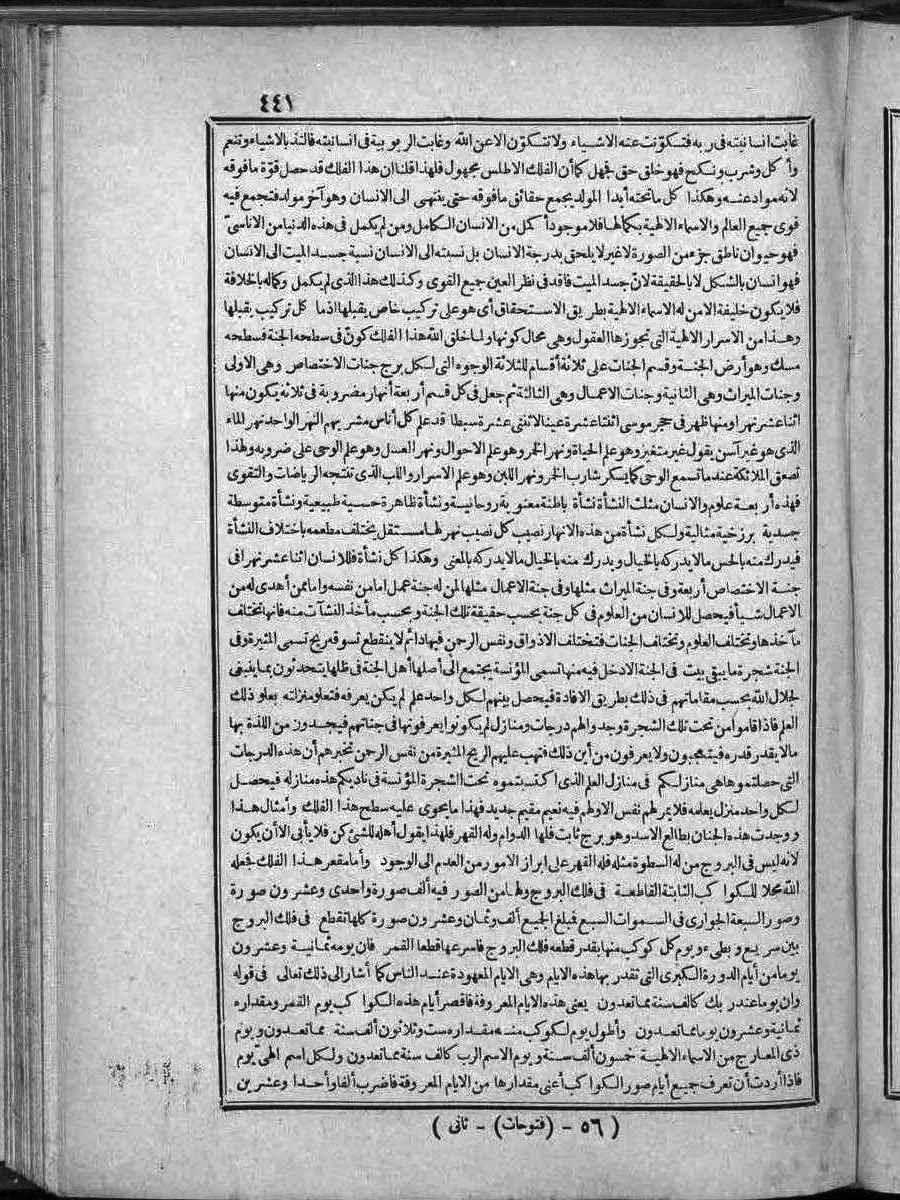 ٤٤١
غابت انسانيته فى ربه فتكوّنت عنه الاشياء ولا تتكوّن الا عن الله وغابت الربوبية فى انسانيته فالتذ بالاشياء وتنعم
وأكل وشرب ونكح فهو خلق حق فجهل كما أن الفلك الاطلس مجهول فلهذا قلنا ان هذا الفلك قد حصل قوّة ما فوقه
لانه مولد عنه وهكذا كل ما تحته أبدا المولد يجمع حقائق ما فوقه حتى ينتهى الى الانسان وهو آخر مولد فتجمع فيه
قوى جميع العالم والاسماء الالهية بكمالها فلا موجود أكمل من الانسان الكامل ومن لم يكمل فى هذه الدنيا من الاناسىّ
فهو حيوان ناطق جزء من الصورة لا غير لا يلحق بدرجة الانسان بل نسبته الى الانسان نسبة جسد الميت الى الانسان
فهو انسان بالشكل لا بالحقيقة لانّ جسد الميت فاقد فى نظر العين جميع القوى وكذلك هذا الذى لم يكمل وكماله بالخلافة
فلا يكون خليفة الا من له الاسماء الالهية بطريق الاستحقاق أى هو على تركيب خاص يقبلها اذ ما كل تركيب يقبلها
وهذا من الاسرار الالهية التى تجوزها العقول وهى محال كونها ولما خلق الله هذا الفلك كوّن فى سطحه الجنة فسطحه
مسك وهو أرض الجنة وقسم الجنات على ثلاثة أقسام للثلاثة الوجوه التى لكل برج جنات الاختصاص وهى الاولى
وجنات الميراث وهى الثانية وجنات الاعمال وهى الثالثة ثم جعل فى كل قسم أربعة أنهار مضروبة فى ثلاثة يكون منها
اثنا عشر نهرا ومنها ظهر فى حجر موسى اثنتا عشرة عينا لاثنتى عشرة سبطا قد علم كل أناس مشربهم النهر الواحد نهر الماء
الذى هو غير آسن يقول غير متغير وهو علم الحياة ونهر الخمر وهو علم الاحوال ونهر العسل وهو علم الوحى على ضروبه ولهذا
تصعق الملائكة عندما تسمع الوحى كما يسكر شارب الخمر ونهر اللبن وهو علم الاسرار واللب الذى تنتجه الرياضات والتقوى
فهذه أربعة علوم والانسان مثلث النشأة نشأة باطنة معنوية روحانية ونشأة ظاهرة حسية طبيعية ونشأة متوسطة
جسدية برزخية مثالية ولكل نشأة من هذه الانهار نصيب كل نصيب نهر لها مستقل يختلف مطعمه باختلاف النشأة
فيدرك منه بالحس ما لا يدركه بالخيال ويدرك منه بالخيال ما لا يدركه بالمعنى وهكذا كل نشأة فللانسان اثنا عشر نهرا فى
جنة الاختصاص أربعة وفى جنة الميراث مثلها وفى جنة الاعمال مثلها لمن له جنة عمل اما من نفسه واما ممن أهدى له من
الاعمال شيأ فيحصل للانسان من العلوم فى كل جنة بحسب حقيقة تلك الجنة وبحسب مأخذ النشآت منه فانها تختلف
مآخذها وتختلف العلوم وتختلف الجنات فتختلف الاذواق ونفس الرحمن فيها دائم لا ينقطع تسوقه ريح تسمى المثيرة وفى
الجنة شجرة ما يبقى بيت فى الجنة الا دخل فيه منها تسمى المؤنسة يجتمع الى أصلها أهل الجنة فى ظلها يتحدثون بما ينبغى
لجلال الله بحسب مقاماتهم فى ذلك بطريق الافادة فيحصل بينهم لكل واحد علم لم يكن يعرفه فتعلو منزلته بعلو ذلك
العلم فاذا قاموا من تحت تلك الشجرة وجدوا لهم درجات ومنازل لم يكونوا يعرفونها فى جناتهم فيجدون من اللذة بها
ما لا يقدر قدره فيتعجبون ولا يعرفون من أين ذلك فتهب عليهم الريح المثيرة من نفس الرحمن تخبرهم أن هذه الدرجات
التى حصلتموها هى منازلكم فى منازل العلم الذى اكتسبتموه تحت الشجرة المؤنسة فى ناديكم هذه منازله فيحصل
لكل واحد منزل يعلمه فلا يمر لهم نفس الا ولهم فيه نعيم مقيم جديد فهذا ما يحوى عليه سطح هذا الفلك وأمثال هذا
ووجدت هذه الجنان بطالع الاسد وهو برج ثابت فلها الدوام وله القهر فلهذا يقول أهله للشئ كن فلا يأبى الا أن يكون
لانه ليس فى البروج من له السطوة مثله فله القهر على ابراز الامور من العدم الى الوجود وأما مقعر هذا الفلك فجعله
الله محلا للكواكب الثابتة القاطعة فى فلك البروج ولها من الصور فيه ألف صورة واحدى وعشرون صورة
وصور السبعة الجوارى فى السموات السبع فبلغ الجميع ألف وثمان وعشرون صورة كلها تقطع فى فلك البروج
بين سريع وبطىء ويوم كل كوكب منها بقدر قطعه فلك البروج فاسرعها قطعا القمر فان يومه ثمانية وعشرون
يوما من أيام الدورة الكبرى التى تقدر بها هذه الايام وهى الايام المعهودة عند الناس كما أشار الى ذلك تعالى فى قوله
وان يوما عند ربك كالف سنة مما تعدون يعنى هذه الايام المعروفة فاقصر أيام هذه الكواكب يوم القمر ومقداره
ثمانية وعشرون يوما مما تعدون وأطول يوم لكوكب منه مقداره ست وثلاثون ألف سنة مما تعدون ويوم
ذى المعارج من الاسماء الالهية خمسون ألف سنة ويوم الاسم الرب كالف سنة مما تعدون ولكل اسم الهى يوم
فاذا أردت أن تعرف جميع أيام صور الكواكب أعنى مقدارها من الايام المعروفة فاضرب ألفا وأحدا وعشرين
( ٥٦ - (فتوحات) - ثانى )